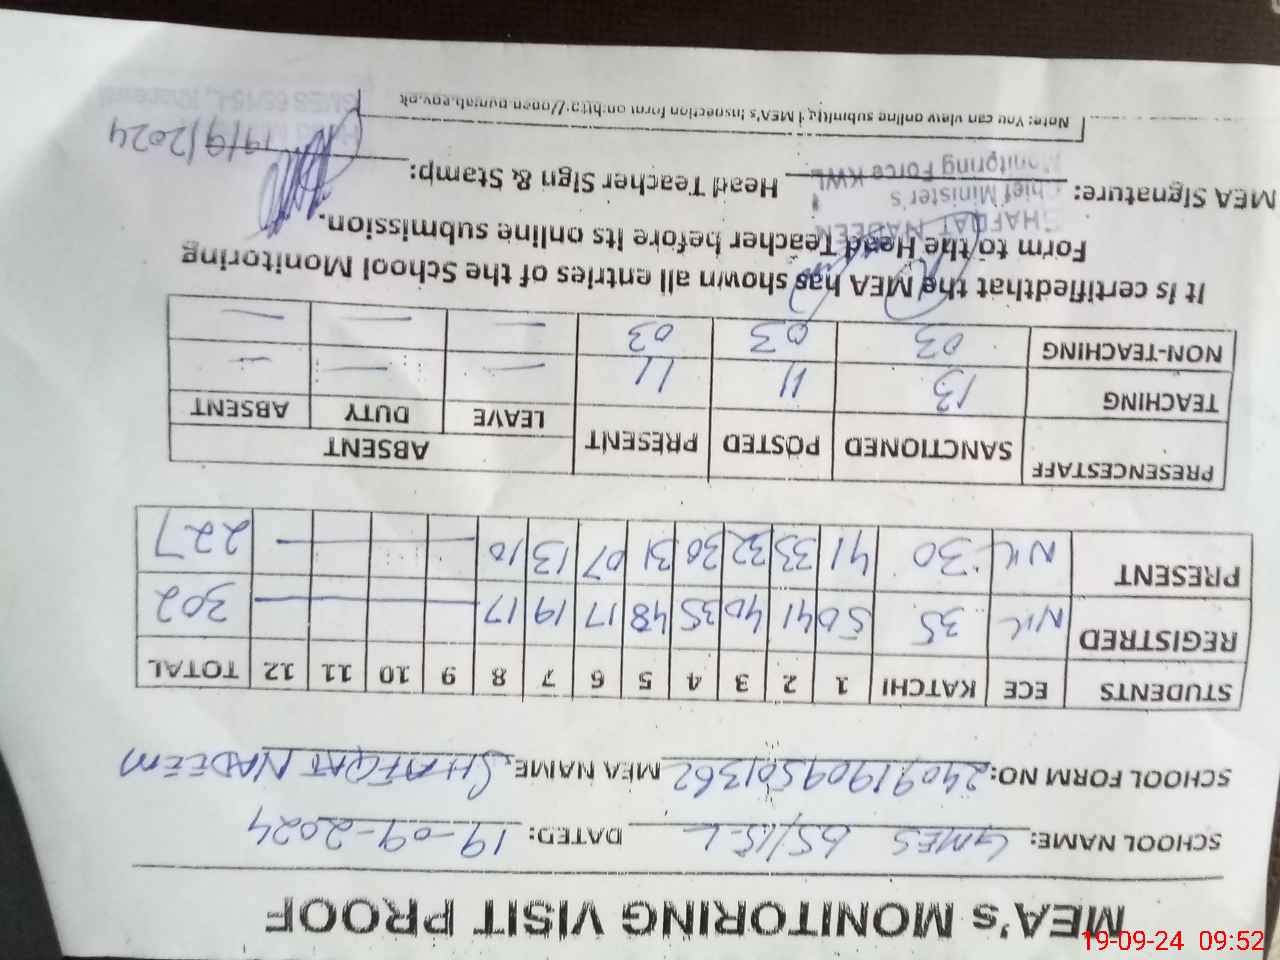 MEA's MONITORING VISIT PROOF
SCHOOL NAME: GMES 65/15-L DATED: 19-09-2024
SCHOOL FORM NO: 24091909501362 MEA NAME: SHAFQAT NADEEM
STUDENTS ECE KATCHI 1 2 3 4 5 6 7 8 9 10 11 12 TOTAL
REGISTRED NIL 35 50 41 40 35 48 17 19 17 — 302
PRESENT NIL 30 41 33 32 30 31 07 13 10 — 227
PRESENCESTAFF SANCTIONED POSTED PRESENT ABSENT
LEAVE DUTY ABSENT
TEACHING 13 11 11 — — —
NON-TEACHING 03 03 03 — — —
It is certifiedthat the MEA has shown all entries of the School Monitoring
Form to the Head Teacher before its online submission.
SHAFQAT NADEEM
Chief Minister's
Monitoring Force KWL
MEA Signature: Head Teacher Sign & Stamp: 19/9/2024
Note: You can view online submitted MEA's inspection form on:http://open.punjab.gov.pk
19-09-24 09:52